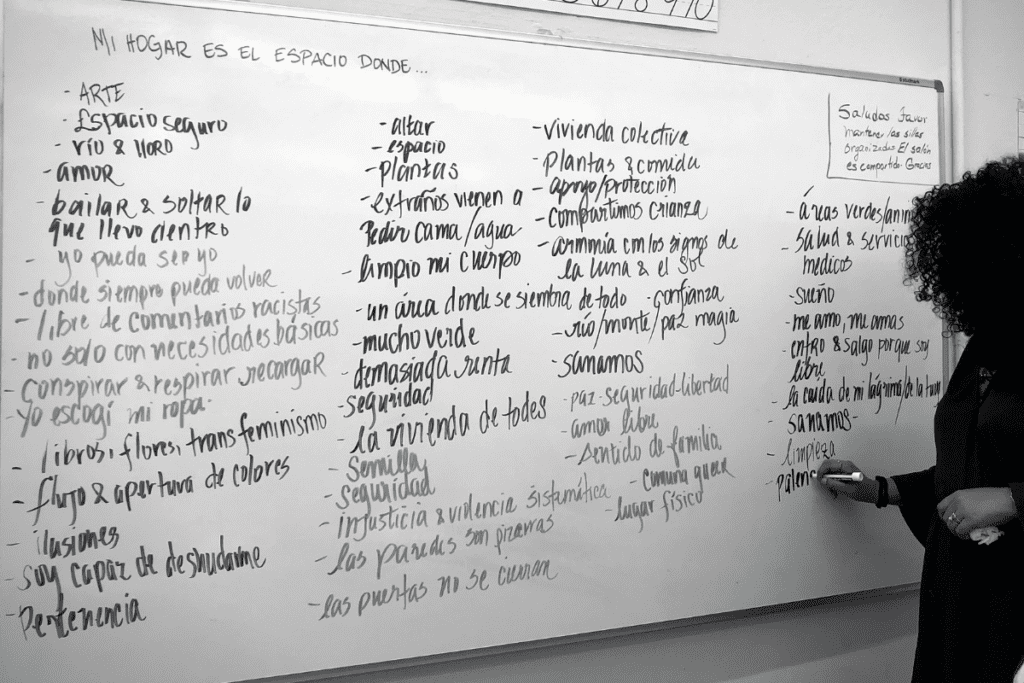 MI HOGAR ES EL ESPACIO DONDE...
- ARTE
- Espacio seguro
- río & lloro
- amor
- bailar & soltar lo
que llevo dentro
- yo pueda ser yo
- donde siempre pueda volver
- libre de comentarios racistas
- no solo con necesidades básicas
- conspirar & respirar, recargar
- yo escogí mi ropa.
- libros, flores, transfeminismo
- flujo & apertura de colores
- ilusiones
- soy capaz de deshudarme
- Pertenencia
- altar
- espacio
- plantas
- extraños vienen a
pedir cama/agua
- limpio mi cuerpo
- un área donde se siembra de todo
- mucho verde
- demasiada renta
- seguridad
- la vivienda de todes
- Semillas
- seguridad
- injusticia & violencia sistemática
- las paredes son pizarras
- las puertas no se cierran
- vivienda colectiva
- plantas & comida
- apoyo/protección
- compartimos crianza
- armonía con los signos de
la luna & el sol
- confianza
- río/monte/paz magia
- sanamos
- paz-seguridad-libertad
- amor libre
- sentido de familia
- comuna queer
- lugar físico
- áreas verdes/
- salud & servicio
medicos
- sueño
- me amo, me amas
- entro & salgo porque soy
libre
- la caída de mi lágrima/de la
sanamos-
- limpieza
- palen
Saludos Favor
mantener las sillas
organizadas El salón
es compartido. Gracias